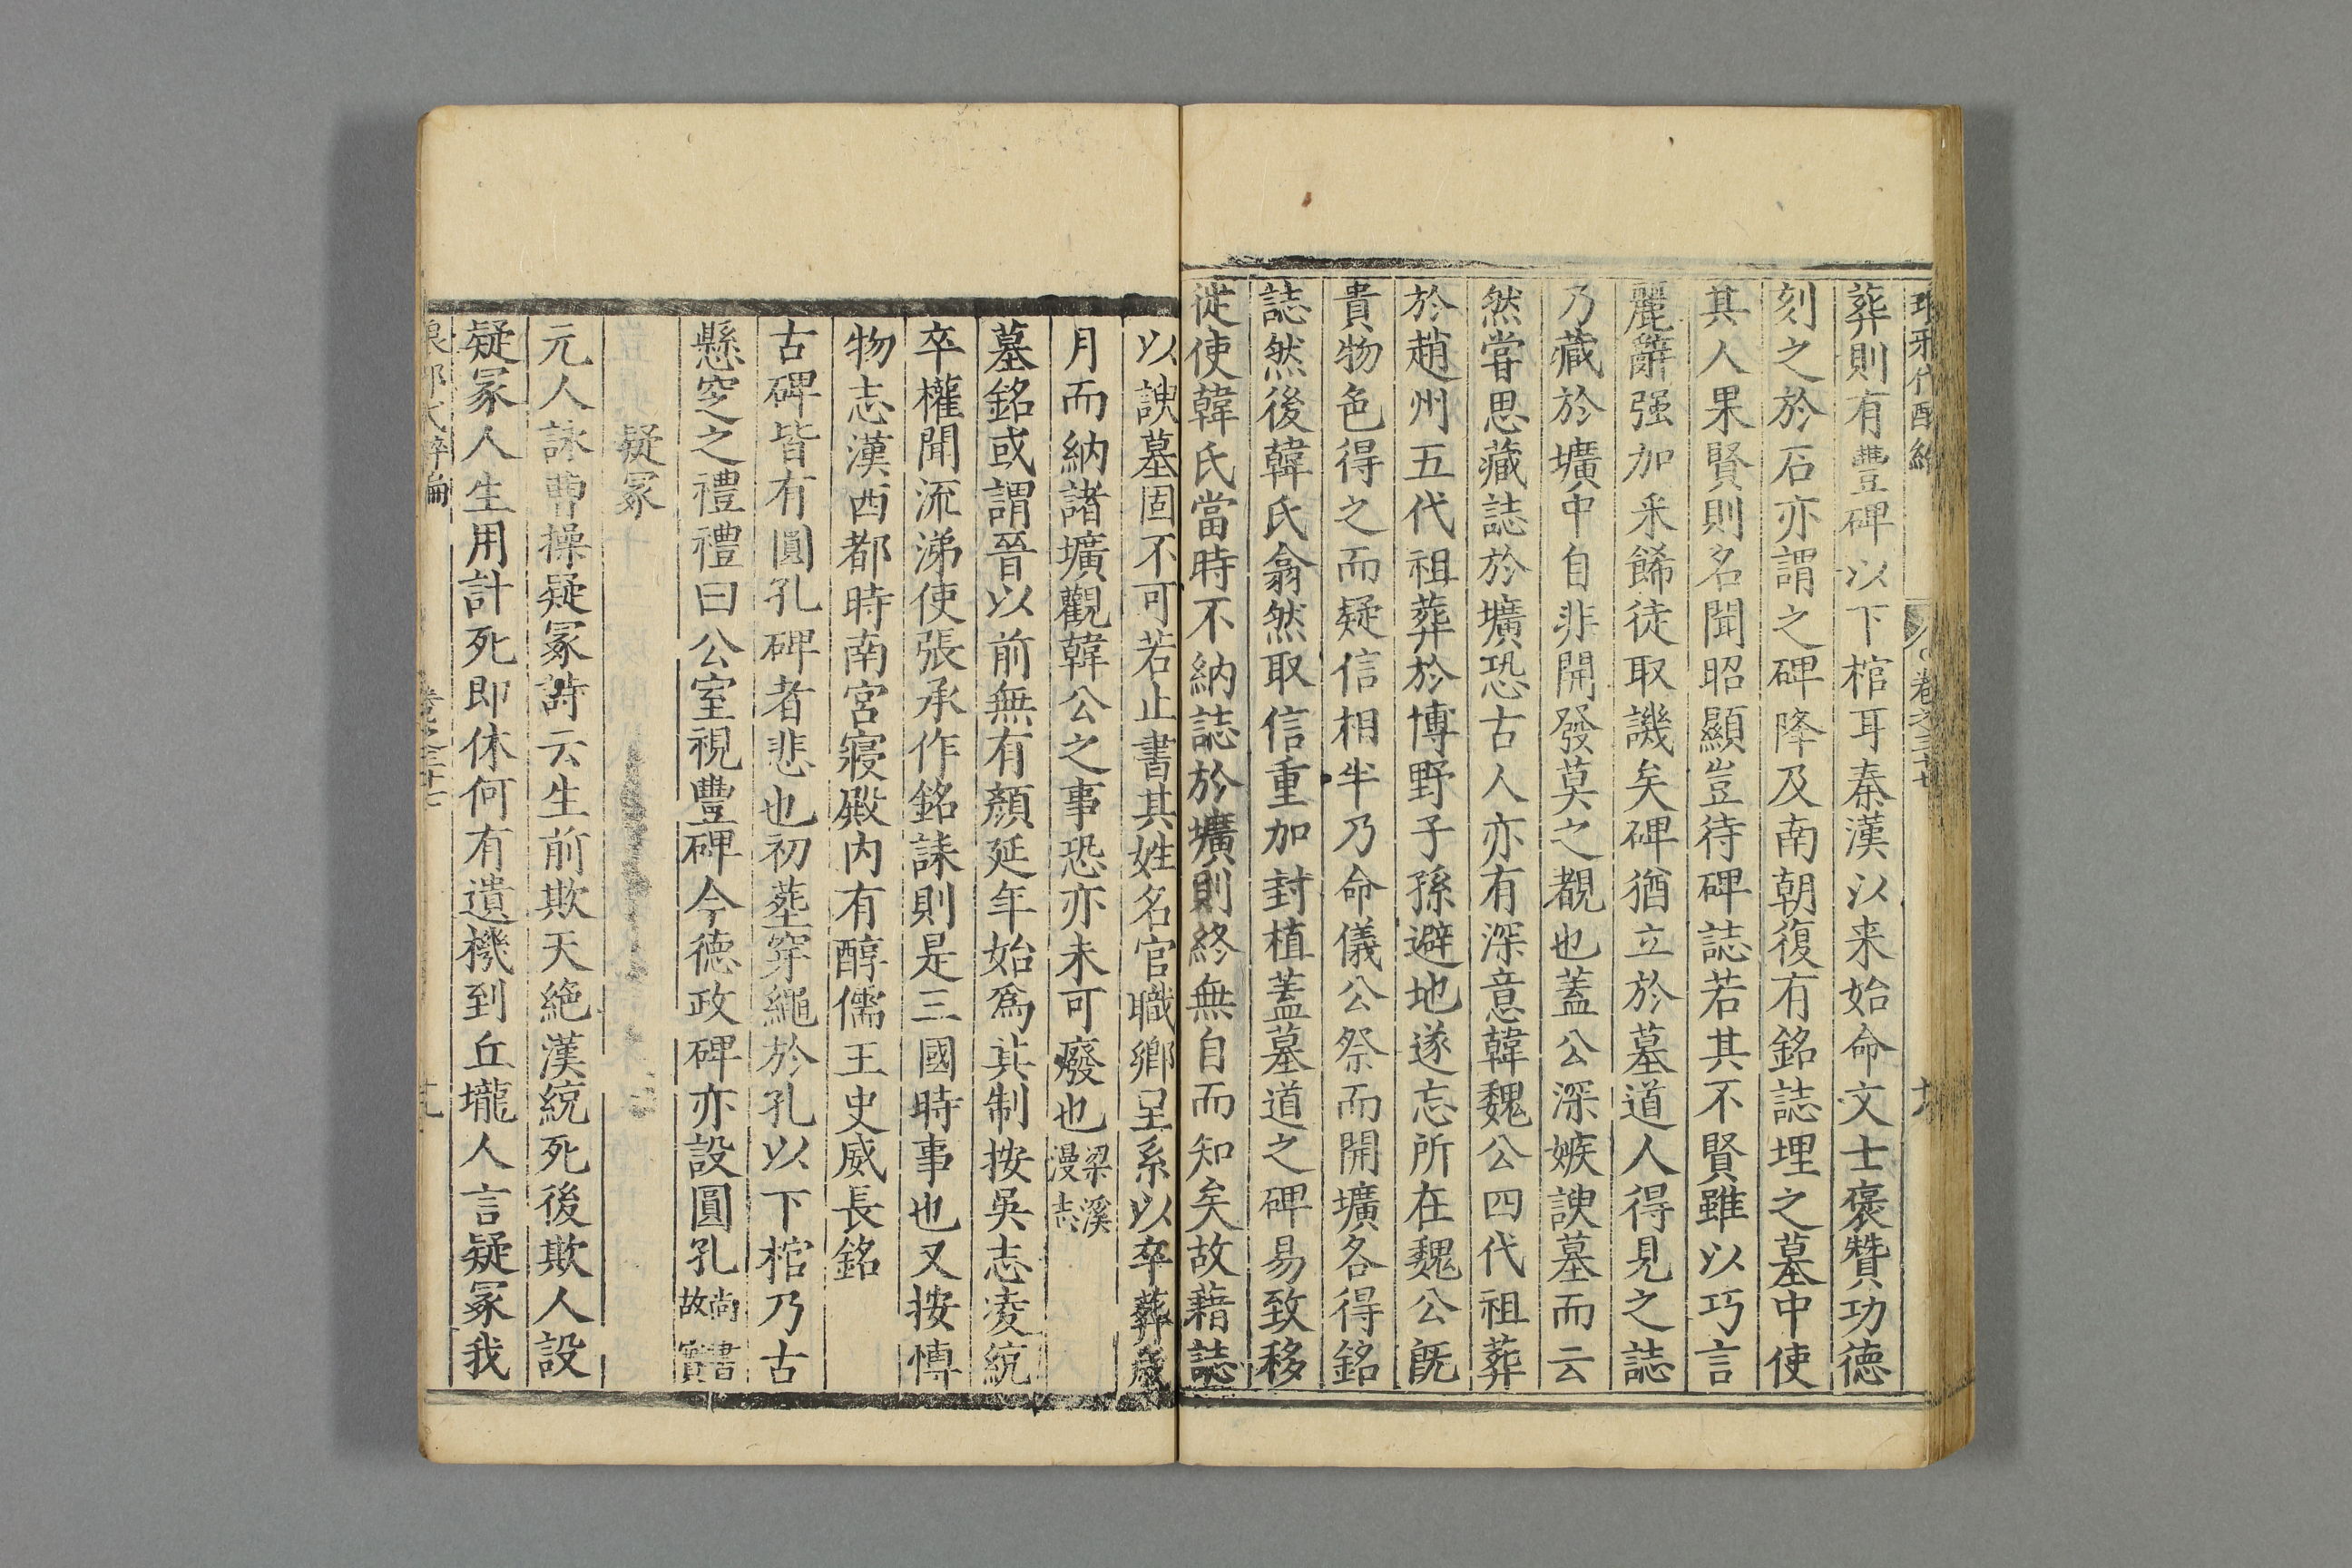 葬則有豐碑以下棺耳秦漢以来始命文士褒贊功德
刻之於石亦謂之碑降及南朝復有銘誌埋之墓中使
其人果賢則名聞昭顯豈待碑誌若其不賢雖以巧言
麗辭强加釆餙徒取譏矣碑猶立於墓道人得見之誌
乃藏於壙中自非開發莫之覩也蓋公深嫉諛墓而云
然嘗思藏誌於壙恐古人亦有深意韓魏公四代祖葬
於趙州五代祖葬於博野子孫避地遂忘所在魏公既
貴物色得之而疑信相半乃命儀公祭而開壙各得銘
誌然後韓氏翕然取信重加封植蓋墓道之碑易致移
徙使韓氏當時不納誌於壙則終無自而知矣故藉誌
以諛墓固不可若止書其姓名官職鄉里系以卒葬歲
月而納諸壙觀韓公之事恐亦未可廢也梁溪漫志
墓銘或謂晉以前無有顏延年始爲其制按吳志凌統
卒權聞流涕使張承作銘誄則是三國時事也又按博
物志漢西都時南宮寢殿内有醇儒王史威長銘
古碑皆有圓孔碑者悲也初塟穿繩於孔以下棺乃古
懸窆之禮禮曰公室視豐碑今德政碑亦設圓孔尚書故實
疑冢
元人詠曹操疑冢詩云生前欺天絶漢統死後欺人設
疑冢人生用計死即休何有遺機到丘壠人言疑冢我